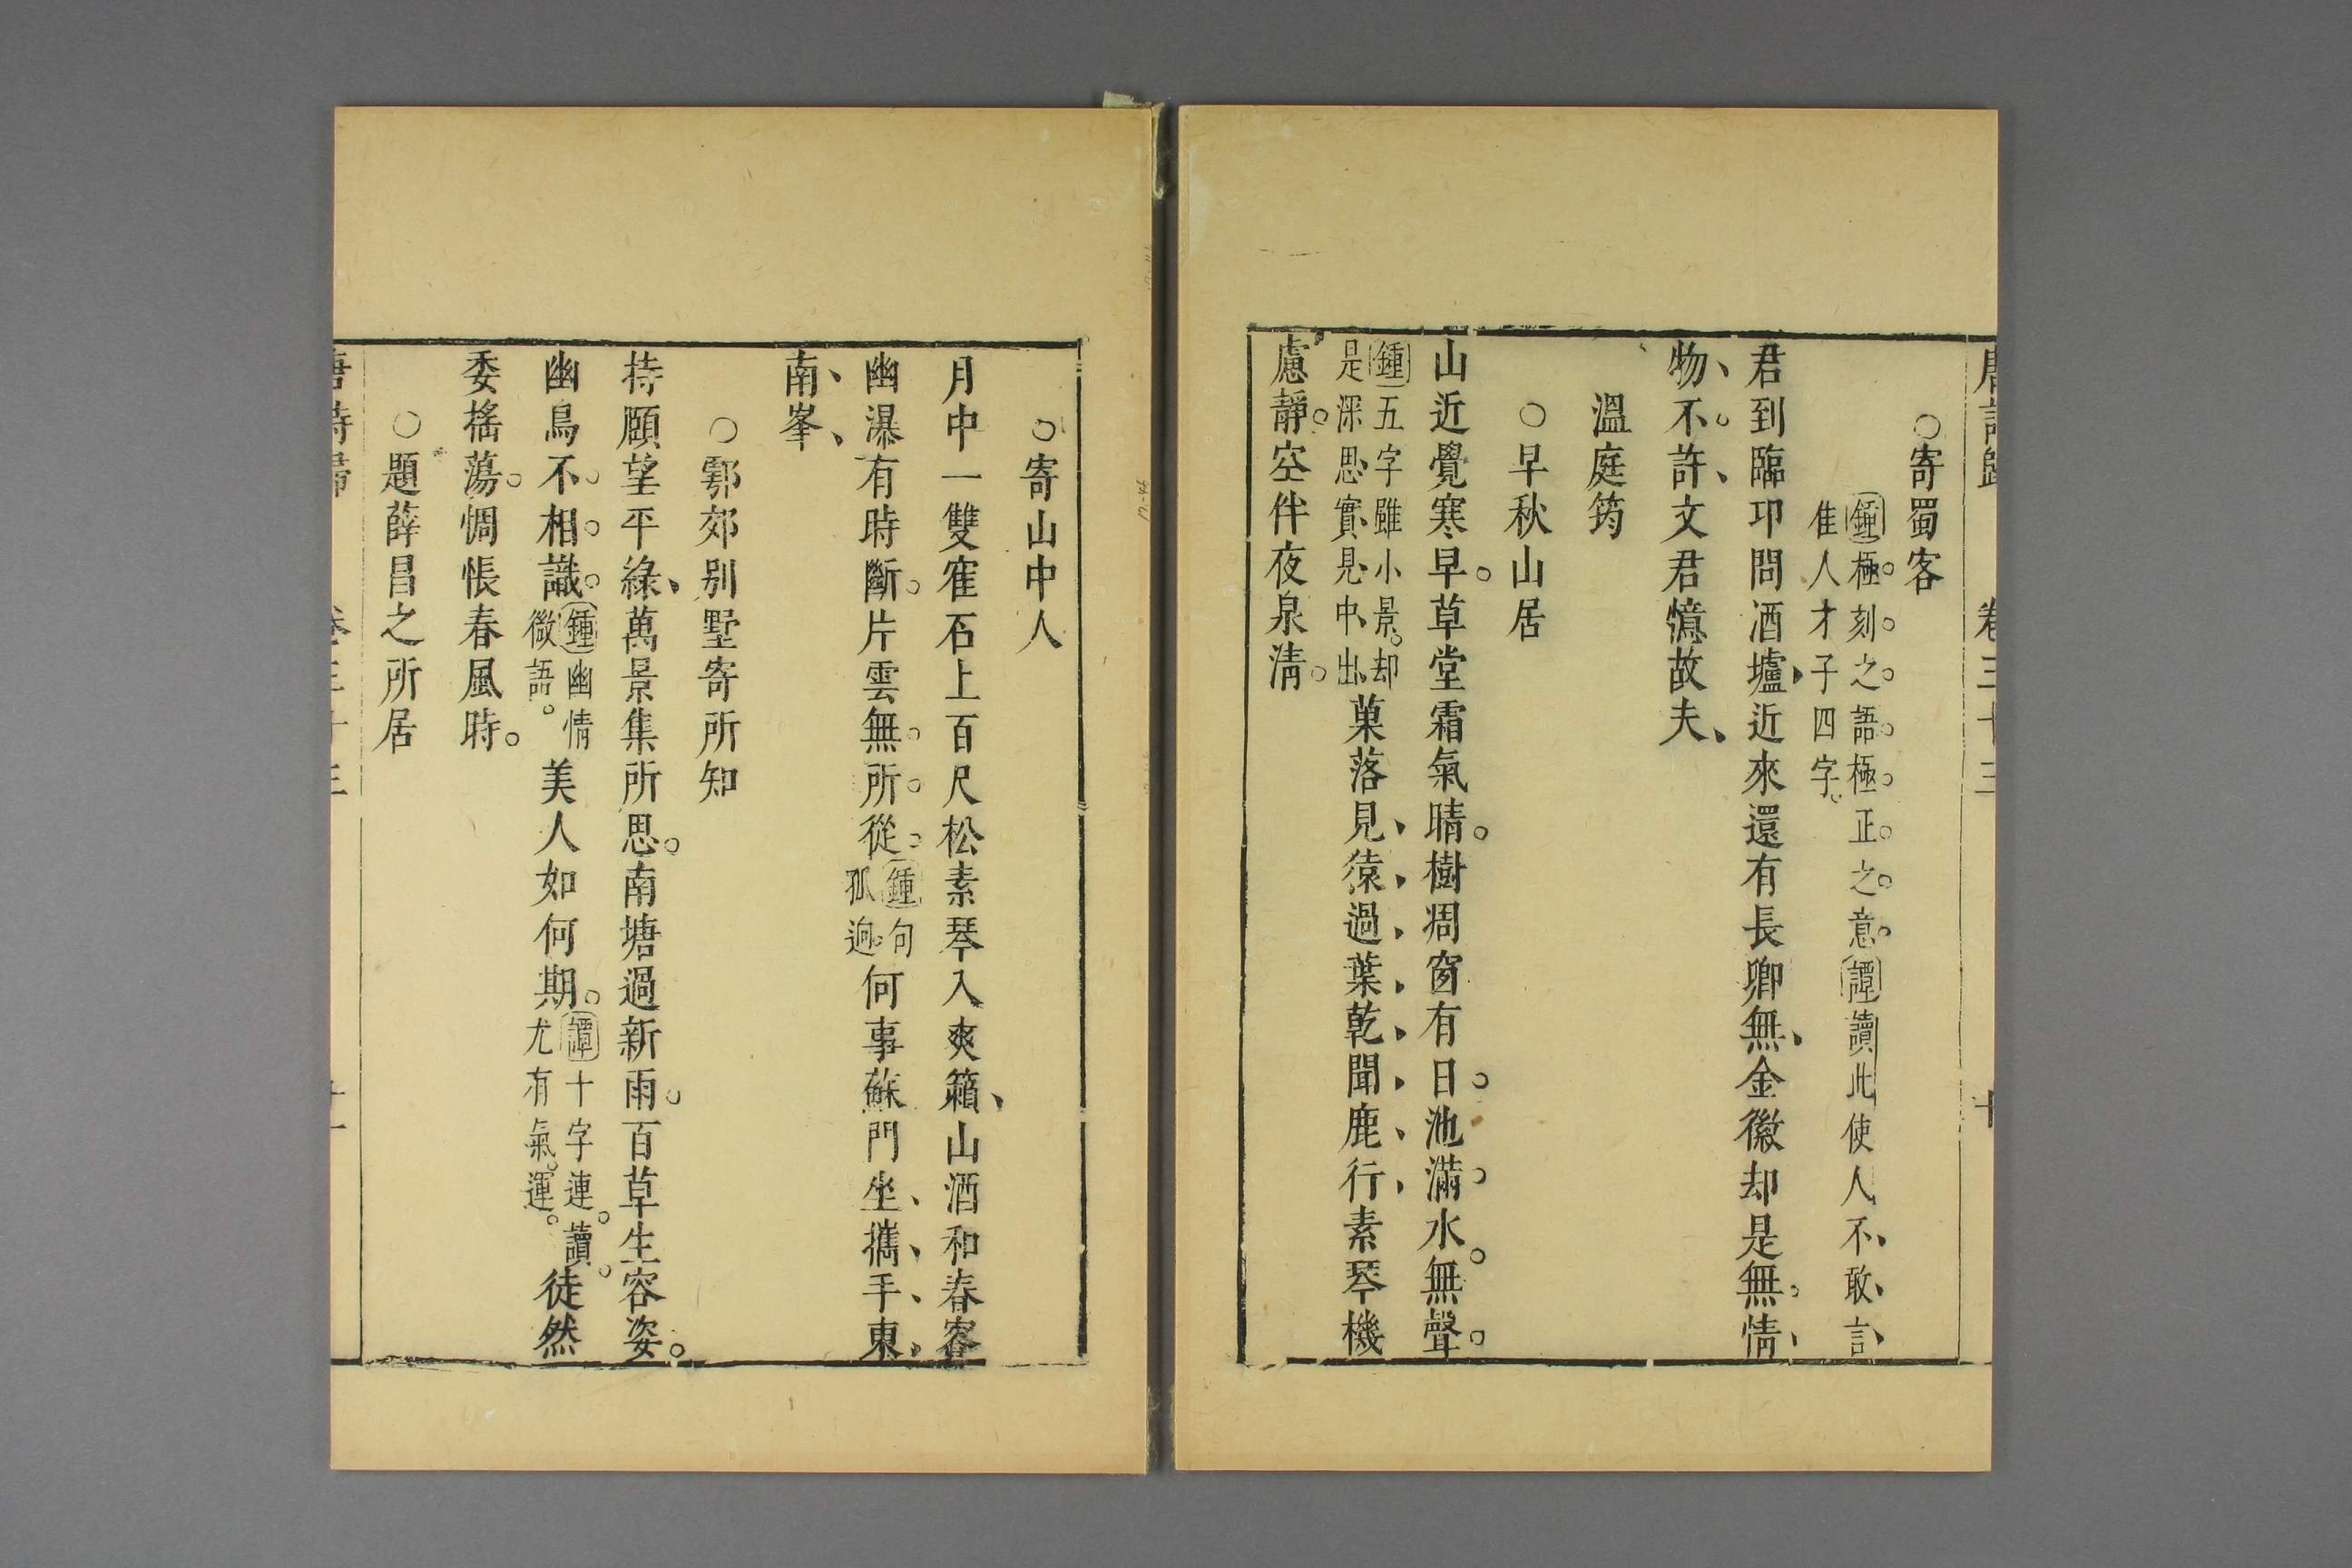 唐詩歸 卷三十三 十
○寄蜀客
鍾極刻之語極正之意譚讀此使人不敢言
隹人才子四字
君到臨卭問酒壚近來還有長卿無金徽却是無情
物不許文君憶故夫
溫庭筠
○早秋山居
山近覺寒早草堂霜氣晴樹凋窗有日池滿水無聲
鍾五字雖小景却是深思實見中出菓落見猿過葉乾聞鹿行素琴機
慮靜空伴夜泉清
○寄山中人
月中一雙寉石上百尺松素琴入爽籟山酒和春容
幽瀑有時斷片雲無所從鍾句孤逈何事蘇門坐攜手東
南峯
○鄠郊别墅寄所知
持頥望平綠萬景集所思南塘過新雨百草生容姿
幽鳥不相識鍾幽情微語美人如何期譚十字連讀尤有氣運徒然
委搖蕩惆悵春風時
○題薛昌之所居
唐詩歸 卷三十三 十一